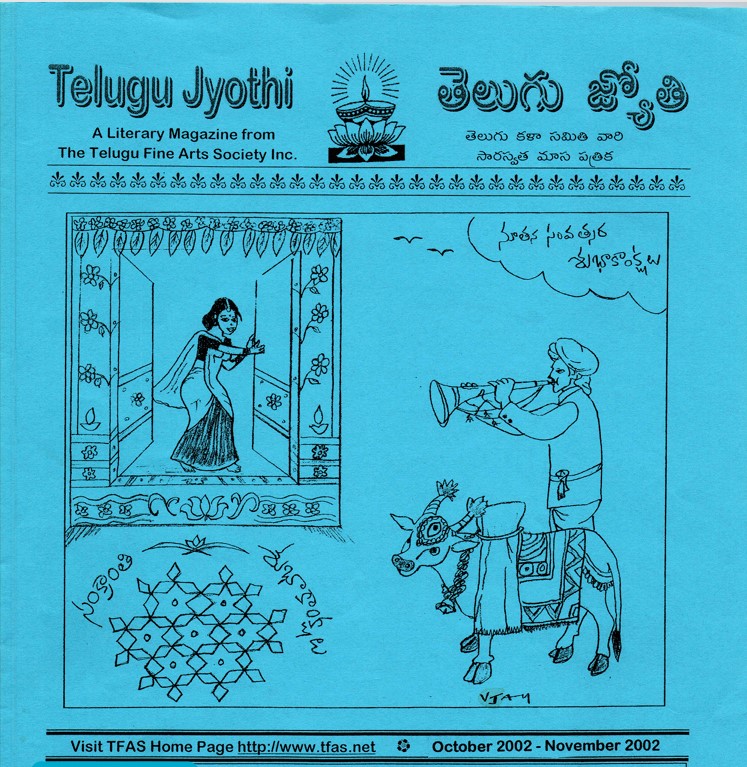 Telugu Jyothi
తెలుగు జ్యోతి
A Literary Magazine from
The Telugu Fine Arts Society Inc.
తెలుగు కళా సమితి వారి
సారస్వత మాస పత్రిక
నూతన సంవత్సర
శుభాకాంక్షలు
సంక్రాంతి
శుభాకాంక్షలు
VJAY
Visit TFAS Home Page http://www.tfas.net
October 2002 - November 2002